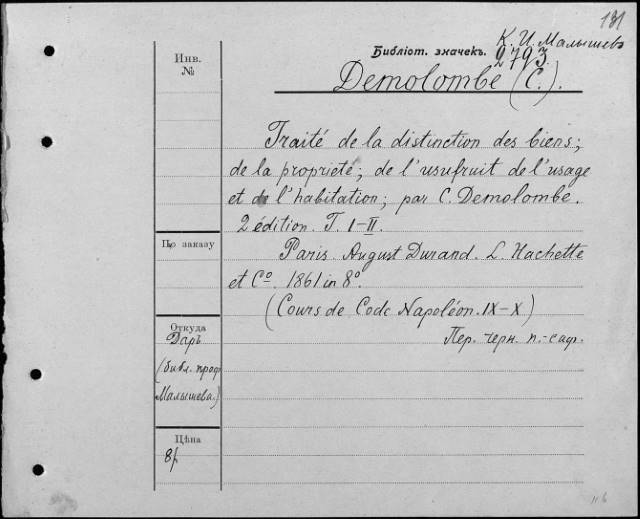 131
К. И. Малышев
Библіот. значекъ. 2793.
Demolombe (C.).
Инв.
№
Traité de la distinction des biens;
de la propriété; de l'usufruit de l'usage
et de l'habitation; par C. Demolombe.
2 édition. T. I-II.
По заказу
Paris. August Durand. L. Hachette
et Cº. 1861 in 8º.
(Cours de Code Napoléon. IX-X)
Откуда
Даръ
(библ. проф.
Малышева.)
Пер. черн. п.-саф.
Цѣна
8р
116